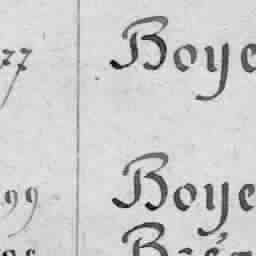 77 Boye
99 Boye